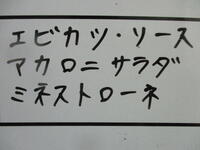 エビカツ・ソース
マカロニサラダ
ミネストローネ